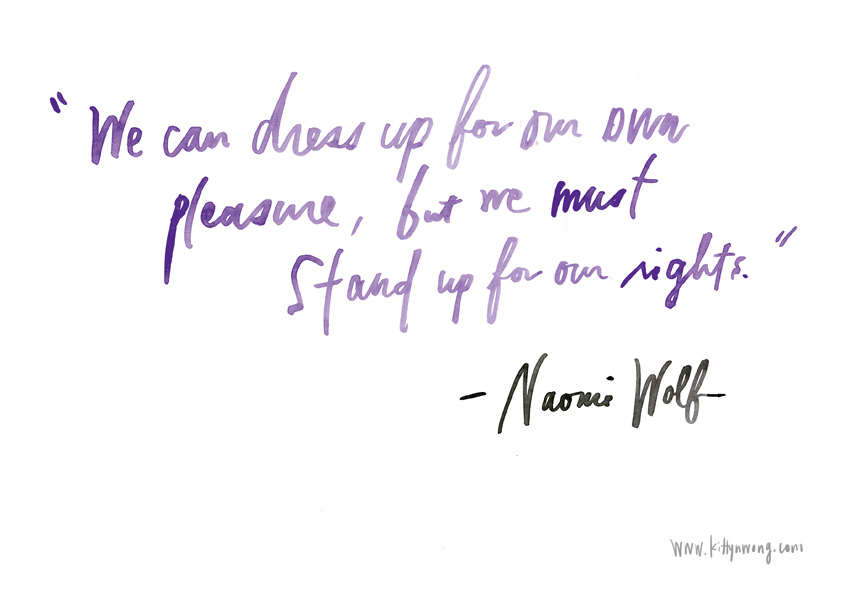 "We can dress up for our own
pleasure, but we must
Stand up for our rights."
- Naomi Wolf-
www.kittynwong.com